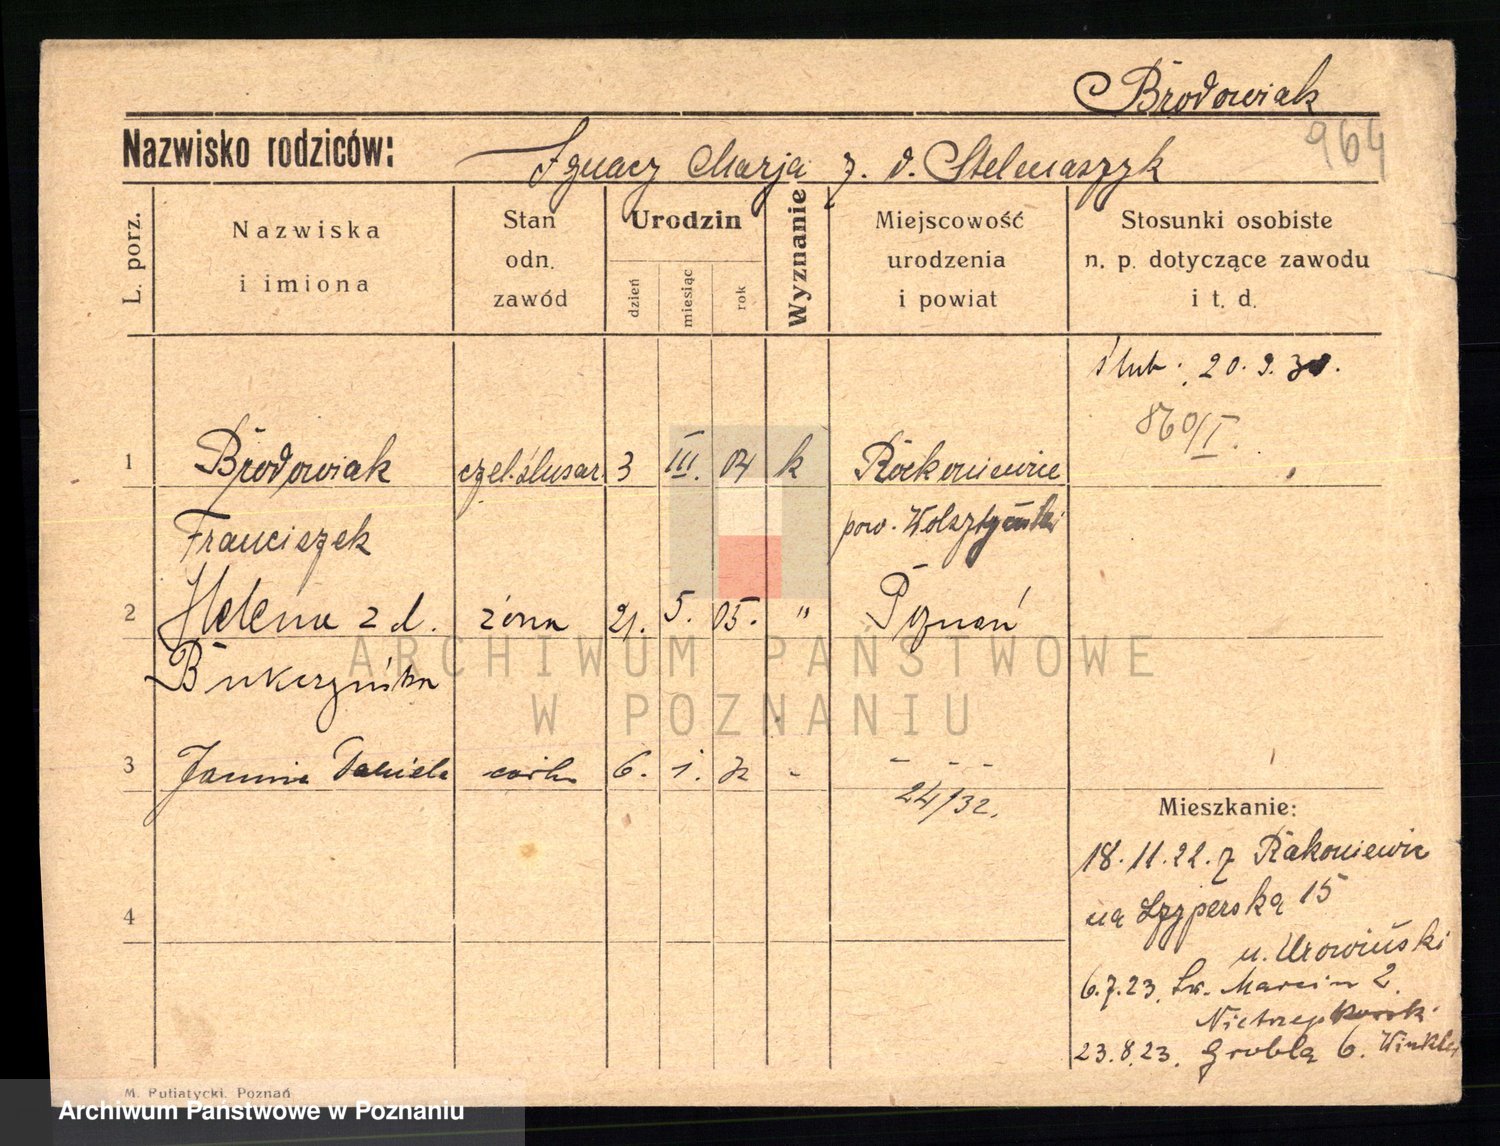 Brodowiak
964
Nazwisko rodziców:
Ignacy Marja z. d. Stelmaszyk
L. porz.
Nazwiska
i imiona
Stan
odn.
zawód
Urodzin
dzień
miesiąc
rok
Wyznanie
Miejscowość
urodzenia
i powiat
Stosunki osobiste
n. p. dotyczące zawodu
i t. d.
ślub. 20. 9. 30.
860/I.
1 Brodowiak czel. ślusar. 3 III. 04 k Rokoniewice
Franciszek pow. Wolsztyński
2 Helena z d. żona 21. 5. 05. " Poznań
Bukczyńska
3 Janina Daniela córka 6. 1. 32 - - - -
24/32.
Mieszkanie:
18. 11. 22. z Rakoniewic
na Szyperską 15
u. Urowiński
6. 7. 23. Św. Marcin 2.
23. 8. 23. Grobla 6. Winkler
4
M. Putiatycki, Poznań
ARCHIWUM PAŃSTWOWE
W POZNANIU
Archiwum Państwowe w Poznaniu